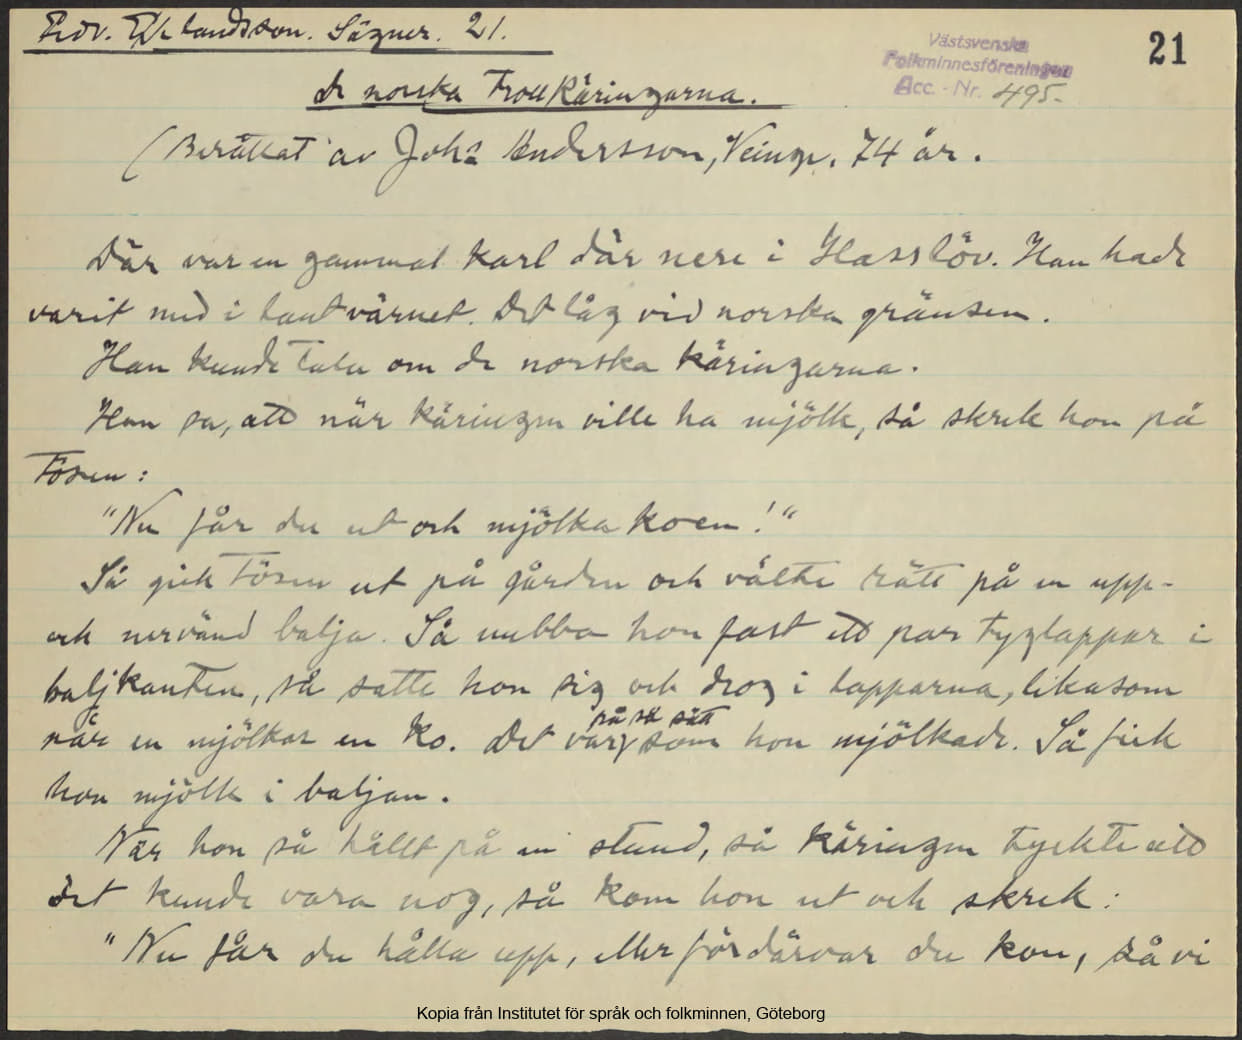 Fridv. Erlandsson. Sägner. 21.
21
Västsvenska
Folkminnesföreningen
Acc. - Nr. 495.
De norska Trollkäringarna.
(Berättat av Johs Andersson, Veinge. 74 år.
Där var en gammal karl där nere i Hasslöv. Han hade
varit med i lantvärnet. Det låg vid norska gränsen.
Han kunde tala om de norska käringarna.
Han sa, att när käringen ville ha mjölk, så skrek hon på
tösen:
"Nu får du ut och mjölka koen!"
Så gick tösen ut på gården och välte rätt på en upp-
och nervänd balja. Så nubba hon fast ett par tyglappar i
baljkanten, så satte hon sig och drog i lapparna, likasom
på så sätt
när en mjölkar en ko. Det var som hon mjölkade. Så fick
hon mjölk i baljan.
När hon så hållt på en stund, så käringen tyckte att
det kunde vara nog, så kom hon ut och skrek:
"Nu får du hålla upp, eller fördärvar du kon, så vi
Kopia från Institutet för språk och folkminnen, Göteborg